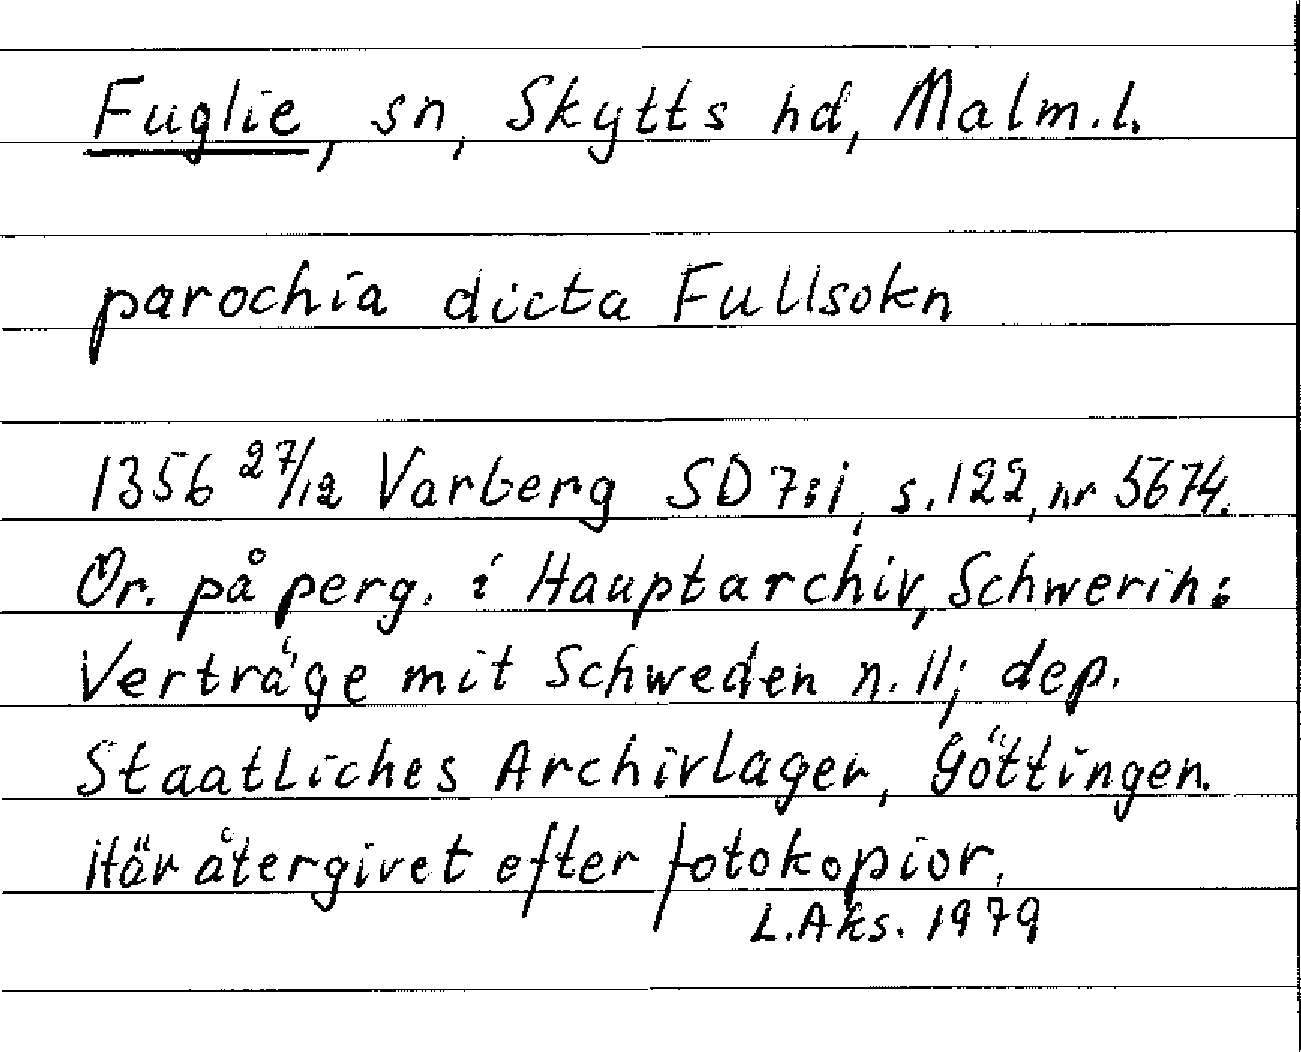 Fuglie, sn, Skytts hd, Malm.l.
parochia dicta Fullsokn
1356 27/12 Varberg SD 7:1, s.122, nr 5674.
Or. på perg. i Hauptarchiv, Schwerin:
Verträge mit Schweden n. 11; dep.
Staatliches Archivlager, Göttingen.
Här återgivet efter fotokopior.
L.Aks. 1979